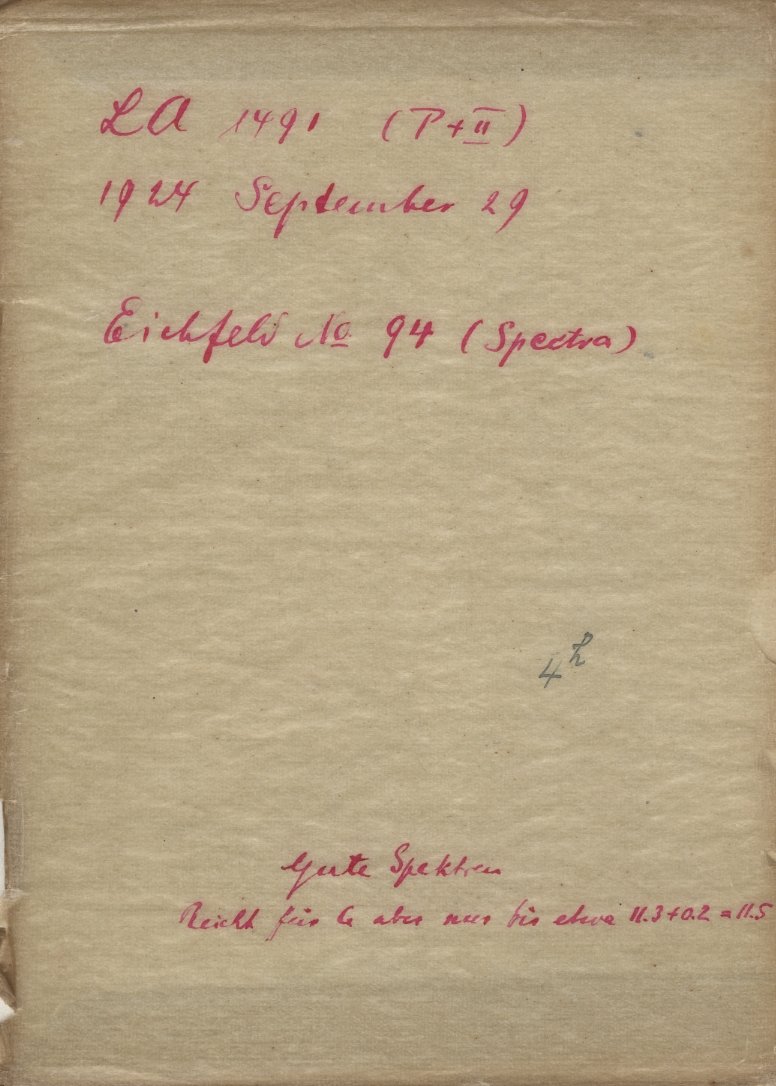 LA 1491 (P+II)
1924 September 29
Eichfeld No 94 (Spectra)
4h
Gute Spektren
Reicht für G aber nur bis etwa 11.3+0.2=11.5